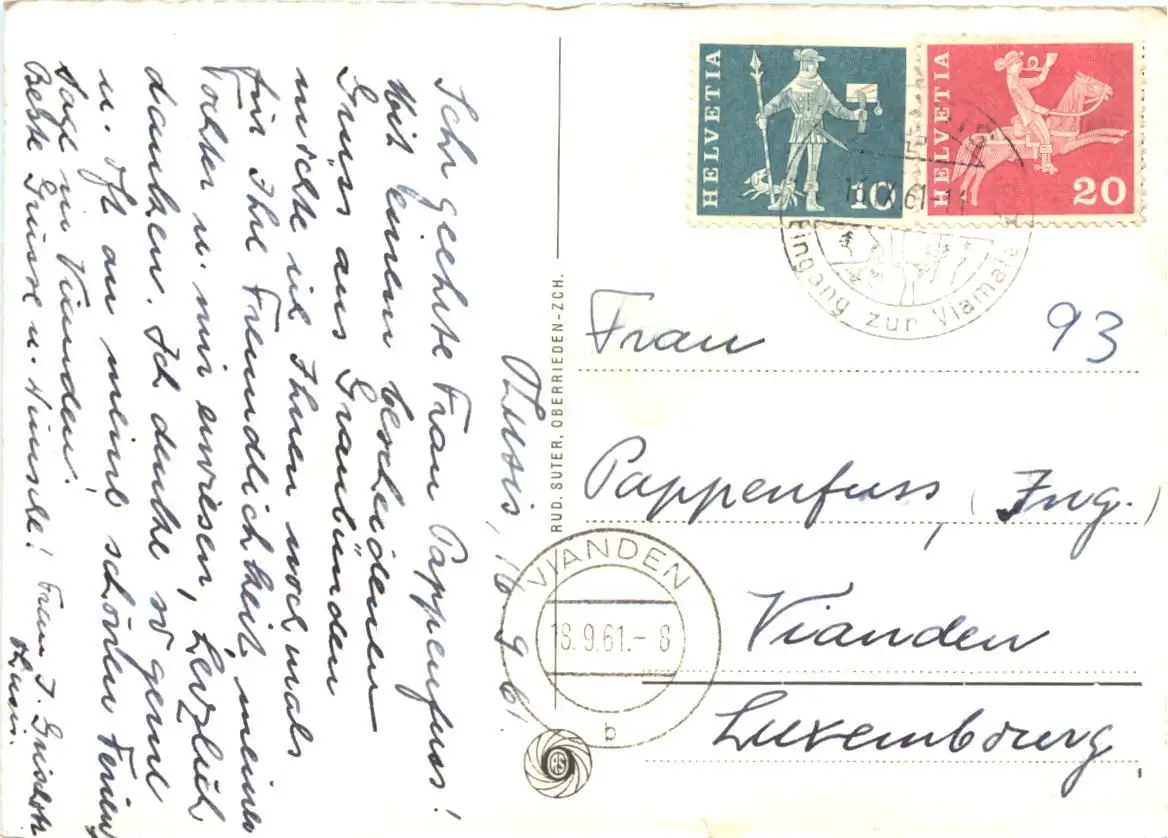 Thusis, 16. 9. 61.
Sehr geehrte Frau Pappenfuss!
Mit einem bescheidenen
Gruss aus Graubünden
möchte ich Ihnen nochmals
für Ihre Freundlichkeit, meiner
Tochter u. mir erwiesen, herzlich
danken. Ich denke so gerne
u. oft an meine schönen Ferien
tage in Vianden.
Beste Grüsse u. Wünsche! Frau J.
Thusis.
RUD. SUTER, OBERRIEDEN-ZCH.
HELVETIA
10
HELVETIA
20
16.IX.61-11
Eingang zur Viamala
Frau
93
Pappenfuss, (Ing.)
Vianden
Luxembourg
VIANDEN
18.9.61.-8
b